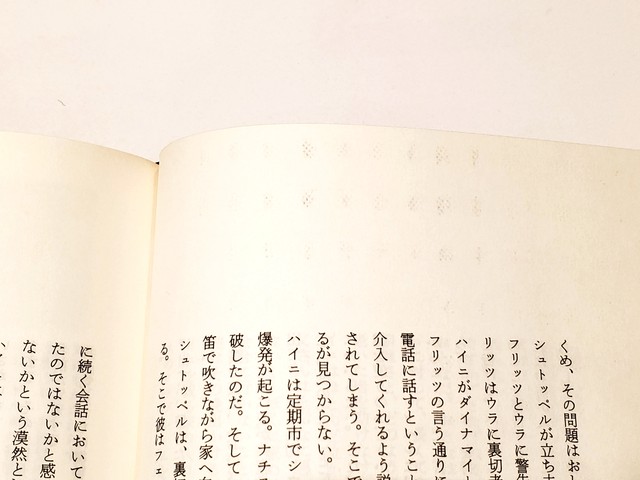 くめ、その問題はおし
シュトッペルが立ち
フリッツとウラに警告
リッツはウラに裏切者
ハイニがダイナマイト
フリッツの言う通りに
電話に話すということ
介入してくれるよう説
されてしまう。そこで
るが見つからない。
ハイニは定期市でシ
爆発が起こる。ナチス
破したのだ。そして
笛で吹きながら家へ
シュトッペルは、裏切
る。そこで彼はフェ
に続く会話において
たのではないかと感
ないかという漠然と